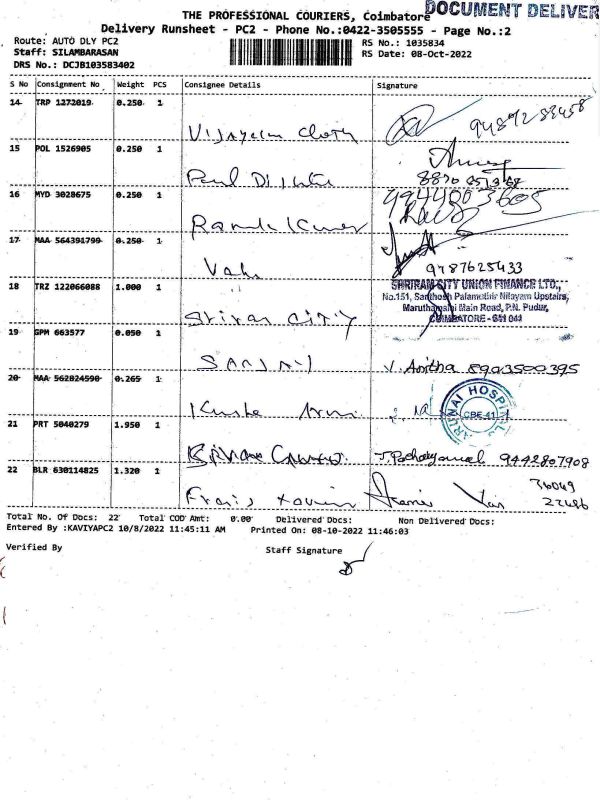 THE PROFESSIONAL COURIERS, Coimbatore
DOCUMENT DELIVER
Delivery Runsheet - PC2 - Phone No.:0422-3505555 - Page No.:2
Route: AUTO DLY PC2
RS No.: 1035834
Staff: SILAMBARASAN
RS Date: 08-Oct-2022
DRS No.: DCJB103583402
S No Consignment No Weight PCS Consignee Details Signature
14 TRP 1272019 0.250 1
15 POL 1526905 0.250 1
Paul
16 MYD 3028675 0.250 1
9944003605
Kumar
17 MAA 564391799 0.250 1
9487625433
18 TRZ 122066088 1.000 1
SHRIRAM CITY UNION FINANCE LTD.,
No.151, Santhosh Palamuthir Nilayam Upstairs,
Maruthamalai Main Road, P.N. Pudur,
COIMBATORE - 641 041
City
19 GPM 663577 0.050 1
SANJAY V. Anitha 8903500395
20 MAA 562824590 0.265 1
ARUNAI HOSPITALS
CBE-41
21 PRT 5040279 1.950 1
9442807908
22 BLR 630114825 1.320 1
Total No. Of Docs: 22 Total COD Amt: 0.00 Delivered Docs: Non Delivered Docs:
Entered By :KAVIYAPC2 10/8/2022 11:45:11 AM Printed On: 08-10-2022 11:46:03
Verified By Staff Signature